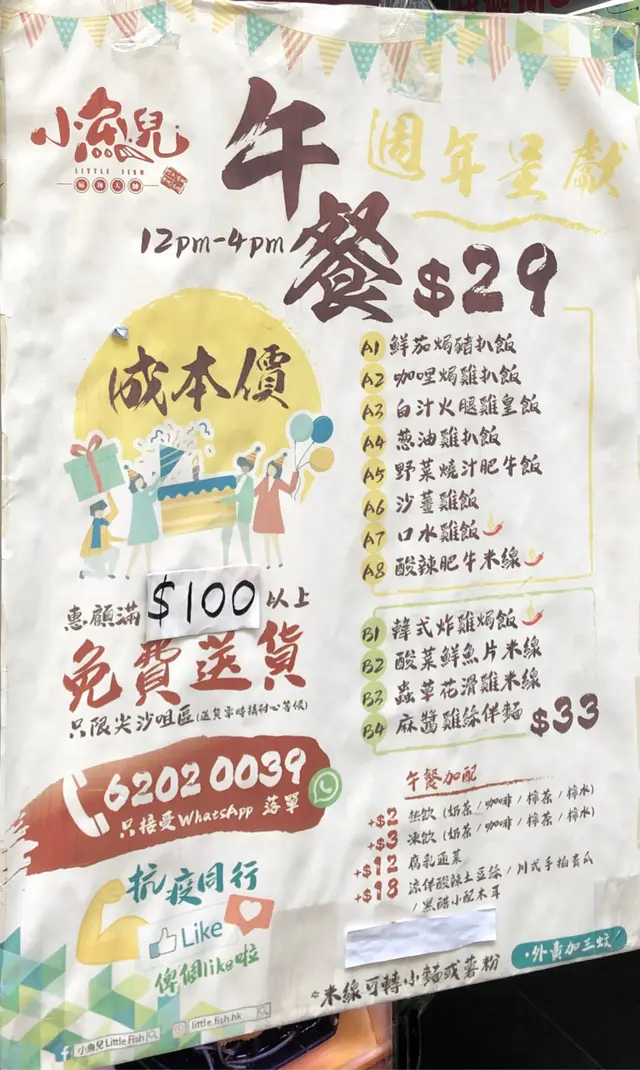 小魚兒
LITTLE FISH
麻辣大師
午餐
週年呈獻
12pm-4pm
$29
成本價
A1 鮮茄焗豬扒飯
A2 咖哩焗雞扒飯
A3 白汁火腿雞皇飯
A4 葱油雞扒飯
A5 野菜燒汁肥牛飯
A6 沙薑雞飯
A7 口水雞飯
A8 酸辣肥牛米線
惠顧滿 $100 以上
免費送貨
只限尖沙咀區(送貨需時請耐心等候)
B1 韓式炸雞焗飯
B2 酸菜鮮魚片米線
B3 蟲草花滑雞米線
B4 麻醬雞絲伴麵
$33
6202 0039
只接受WhatsApp 落單
午餐加配
+$2 熱飲 (奶茶 / 咖啡 / 檸茶 / 檸水)
+$3 凍飲 (奶茶 / 咖啡 / 檸茶 / 檸水)
+$12 腐乳蓮菜
+$18 涼伴酸辣土豆絲 / 川式手拍青瓜
/ 黑醋小配木耳
抗疫同行
Like
俾個like啦
·外賣加三蚊!
*米線可轉小麵或薯粉
小魚兒 Little Fish
little fish.hk